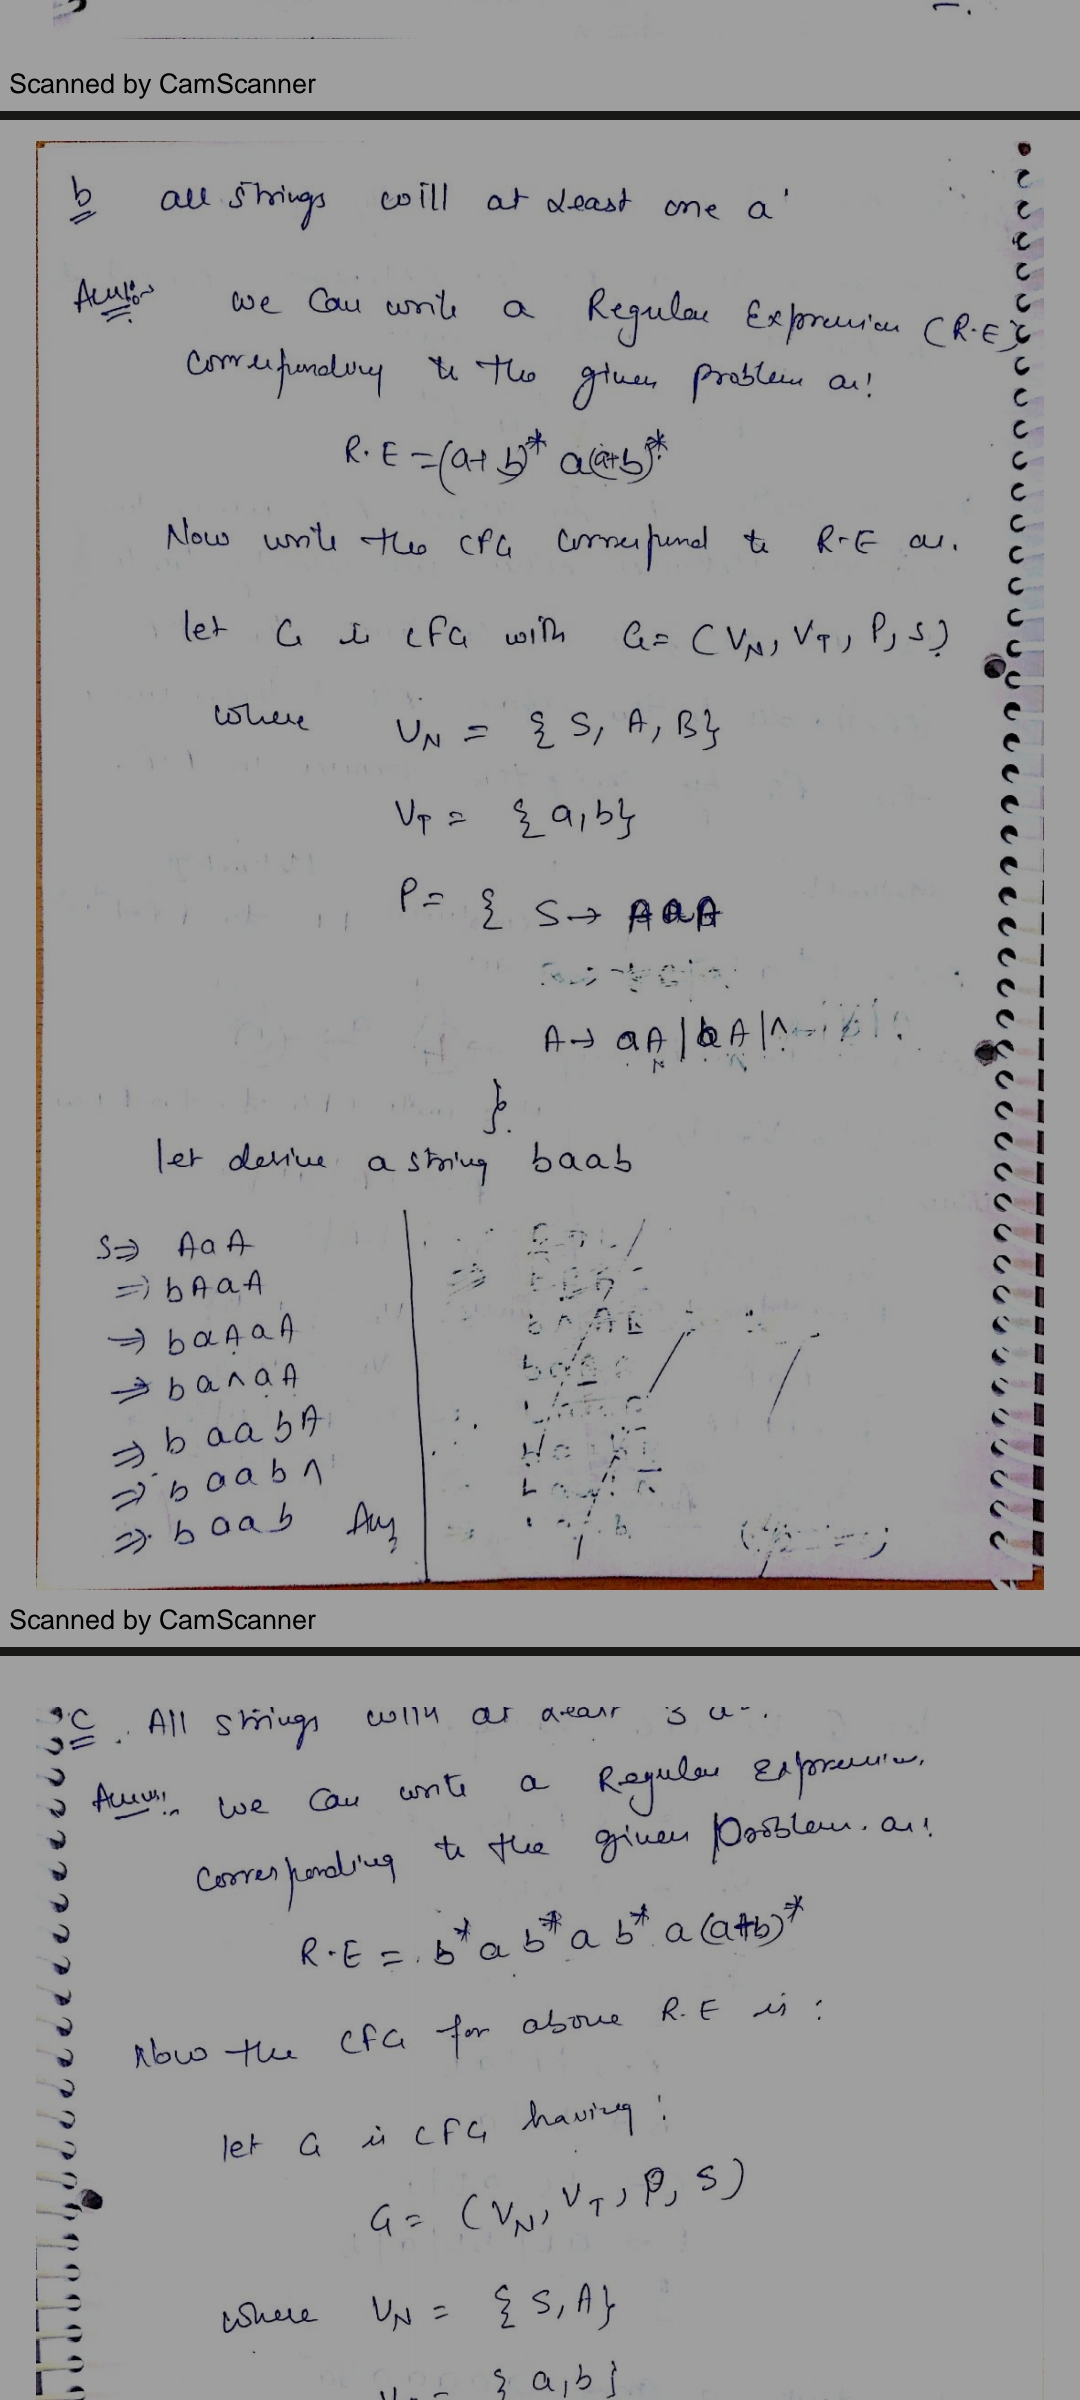 Scanned by CamScanner
b all strings will at least one a'
Ans:- we can write a Regular Expression (R.E)
corresponding to the given problem as!
R.E = (a+b)* a(a+b)*
Now write the CFG correspond to R-E as.
let G is CFG with G = (VN, VT, P, S)
where VN = {S, A, B}
VT = {a, b}
P = { S → AaA
A → aA | bA | ^
}.
let derive a string baab
S ⇒ AaA
⇒ bAaA
⇒ baAaA
⇒ ba^aA
⇒ baabA
⇒ baab^
⇒ baab Ans
Scanned by CamScanner
C. All strings with at least 3 a
Ans:- we can write a Regular Expression.
corresponding to the given problem. as!
R.E = b* a b* a b* a (a+b)*
Now the CFG for above R.E is :
let G is CFG having :
G = (VN, VT, P, S)
where VN = {S, A}
= {a, b}